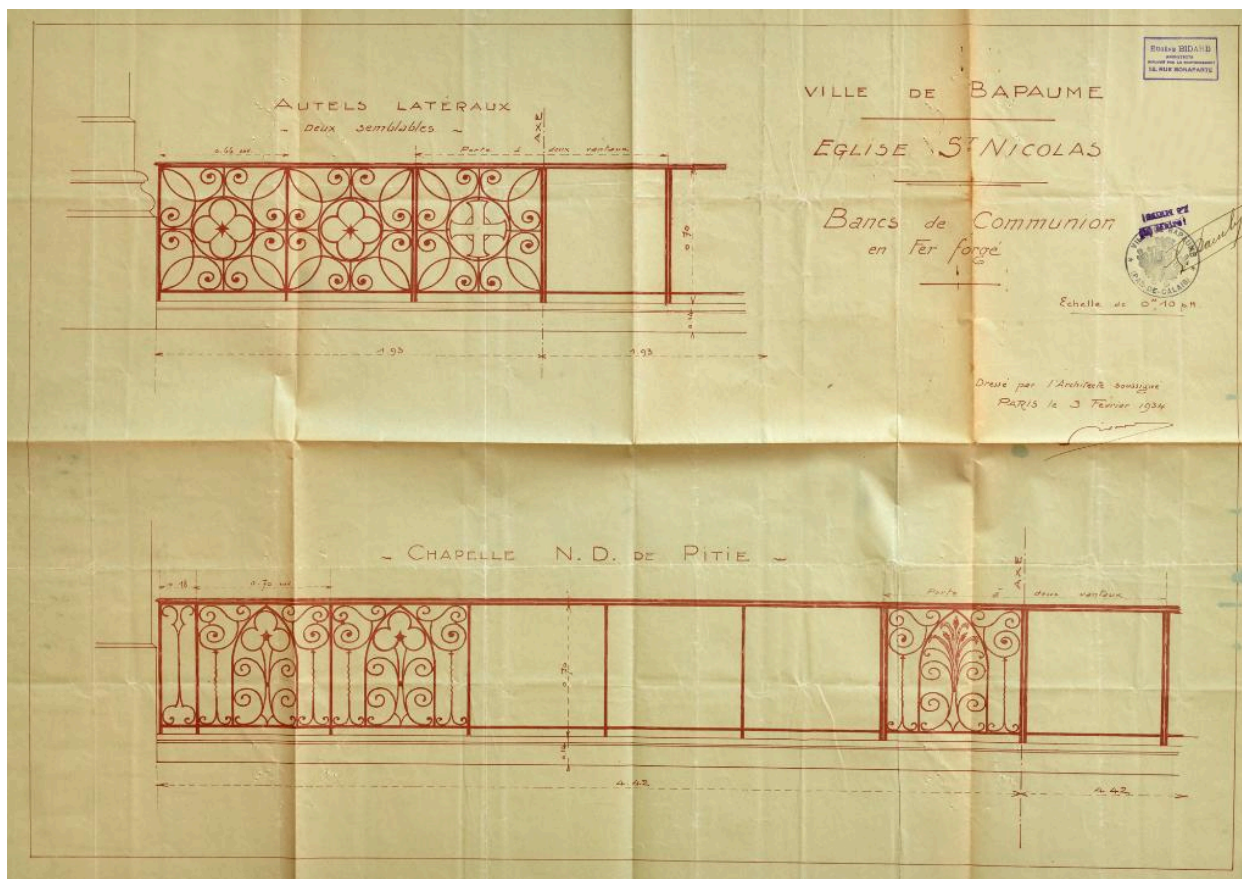 AUTELS LATÉRAUX
- Deux semblables -
AXE
0.64
Porte à deux vantaux
0.70
1.93
1.93
VILLE DE BAPAUME
EGLISE ST NICOLAS
Bancs de Communion
en Fer forgé
Echelle de 0m10 p.m
Dressé par l'Architecte soussigné
PARIS le 3 Février 1934
BIDARD
ARCHITECTE
RUE BONAPARTE
VILLE DE BAPAUME
(PAS-DE-CALAIS)
- CHAPELLE N. D. DE PITIE -
AXE
0.18
0.70
Porte à deux vantaux
0.70
4.42
4.42